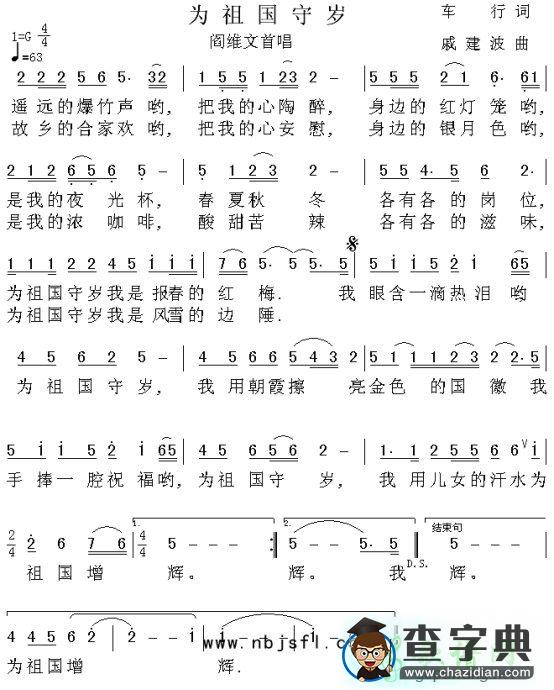 为祖国守岁
1=G 4/4
♩=63
阎维文首唱
车行词
戚建波曲
2 2 2 2 5 6 5· 32 | 1 5 5 1 23 2 - | 5 5 5 2 1 6· 61 |
遥远的爆竹声哟, 把我的心陶醉, 身边的红灯笼哟,
故乡的合家欢哟, 把我的心安慰, 身边的银月色哟,
2 1 2 6 5 6 5 - | 5 1 2 3 2 - | 5 5 4· 5 6 5 |
是我的夜光杯, 春夏秋冬 各有各的岗位,
是我的浓咖啡, 酸甜苦辣 各有各的滋味,
1 1 1 2 2 4 5 i i i | 7 6 5· 5 5· 5 | 5 i i 5 2 i 65 |
为祖国守岁我是报春的红梅. 我眼含一滴热泪哟
为祖国守岁我是风雪的边陲.
4 5 6 2 - | 4 5 6 6 5 4 3 2 | 5 1 1 1 2 3 2 2· 5 |
为祖国守岁, 我用朝霞擦亮金色的国徽我
5 i i 5 2 i 65 | 4 5 6 5 6 5 2 - | 1· 1 2 5 5 5 6 6 i |
手捧一腔祝福哟, 为祖国守岁, 我用儿女的汗水为
2/4 2 6 7 6 | 4/4 5 - - - :| 5 - 5· 5 | 5 - - - |
1.
2.
结束句
祖国增辉。 辉。 我 辉。
D.S.
4 4 5 6 2 2 - | i - - - | i - - -
为祖国增 辉.
www.nbjsfl.c
查字典
www.chazidian.com